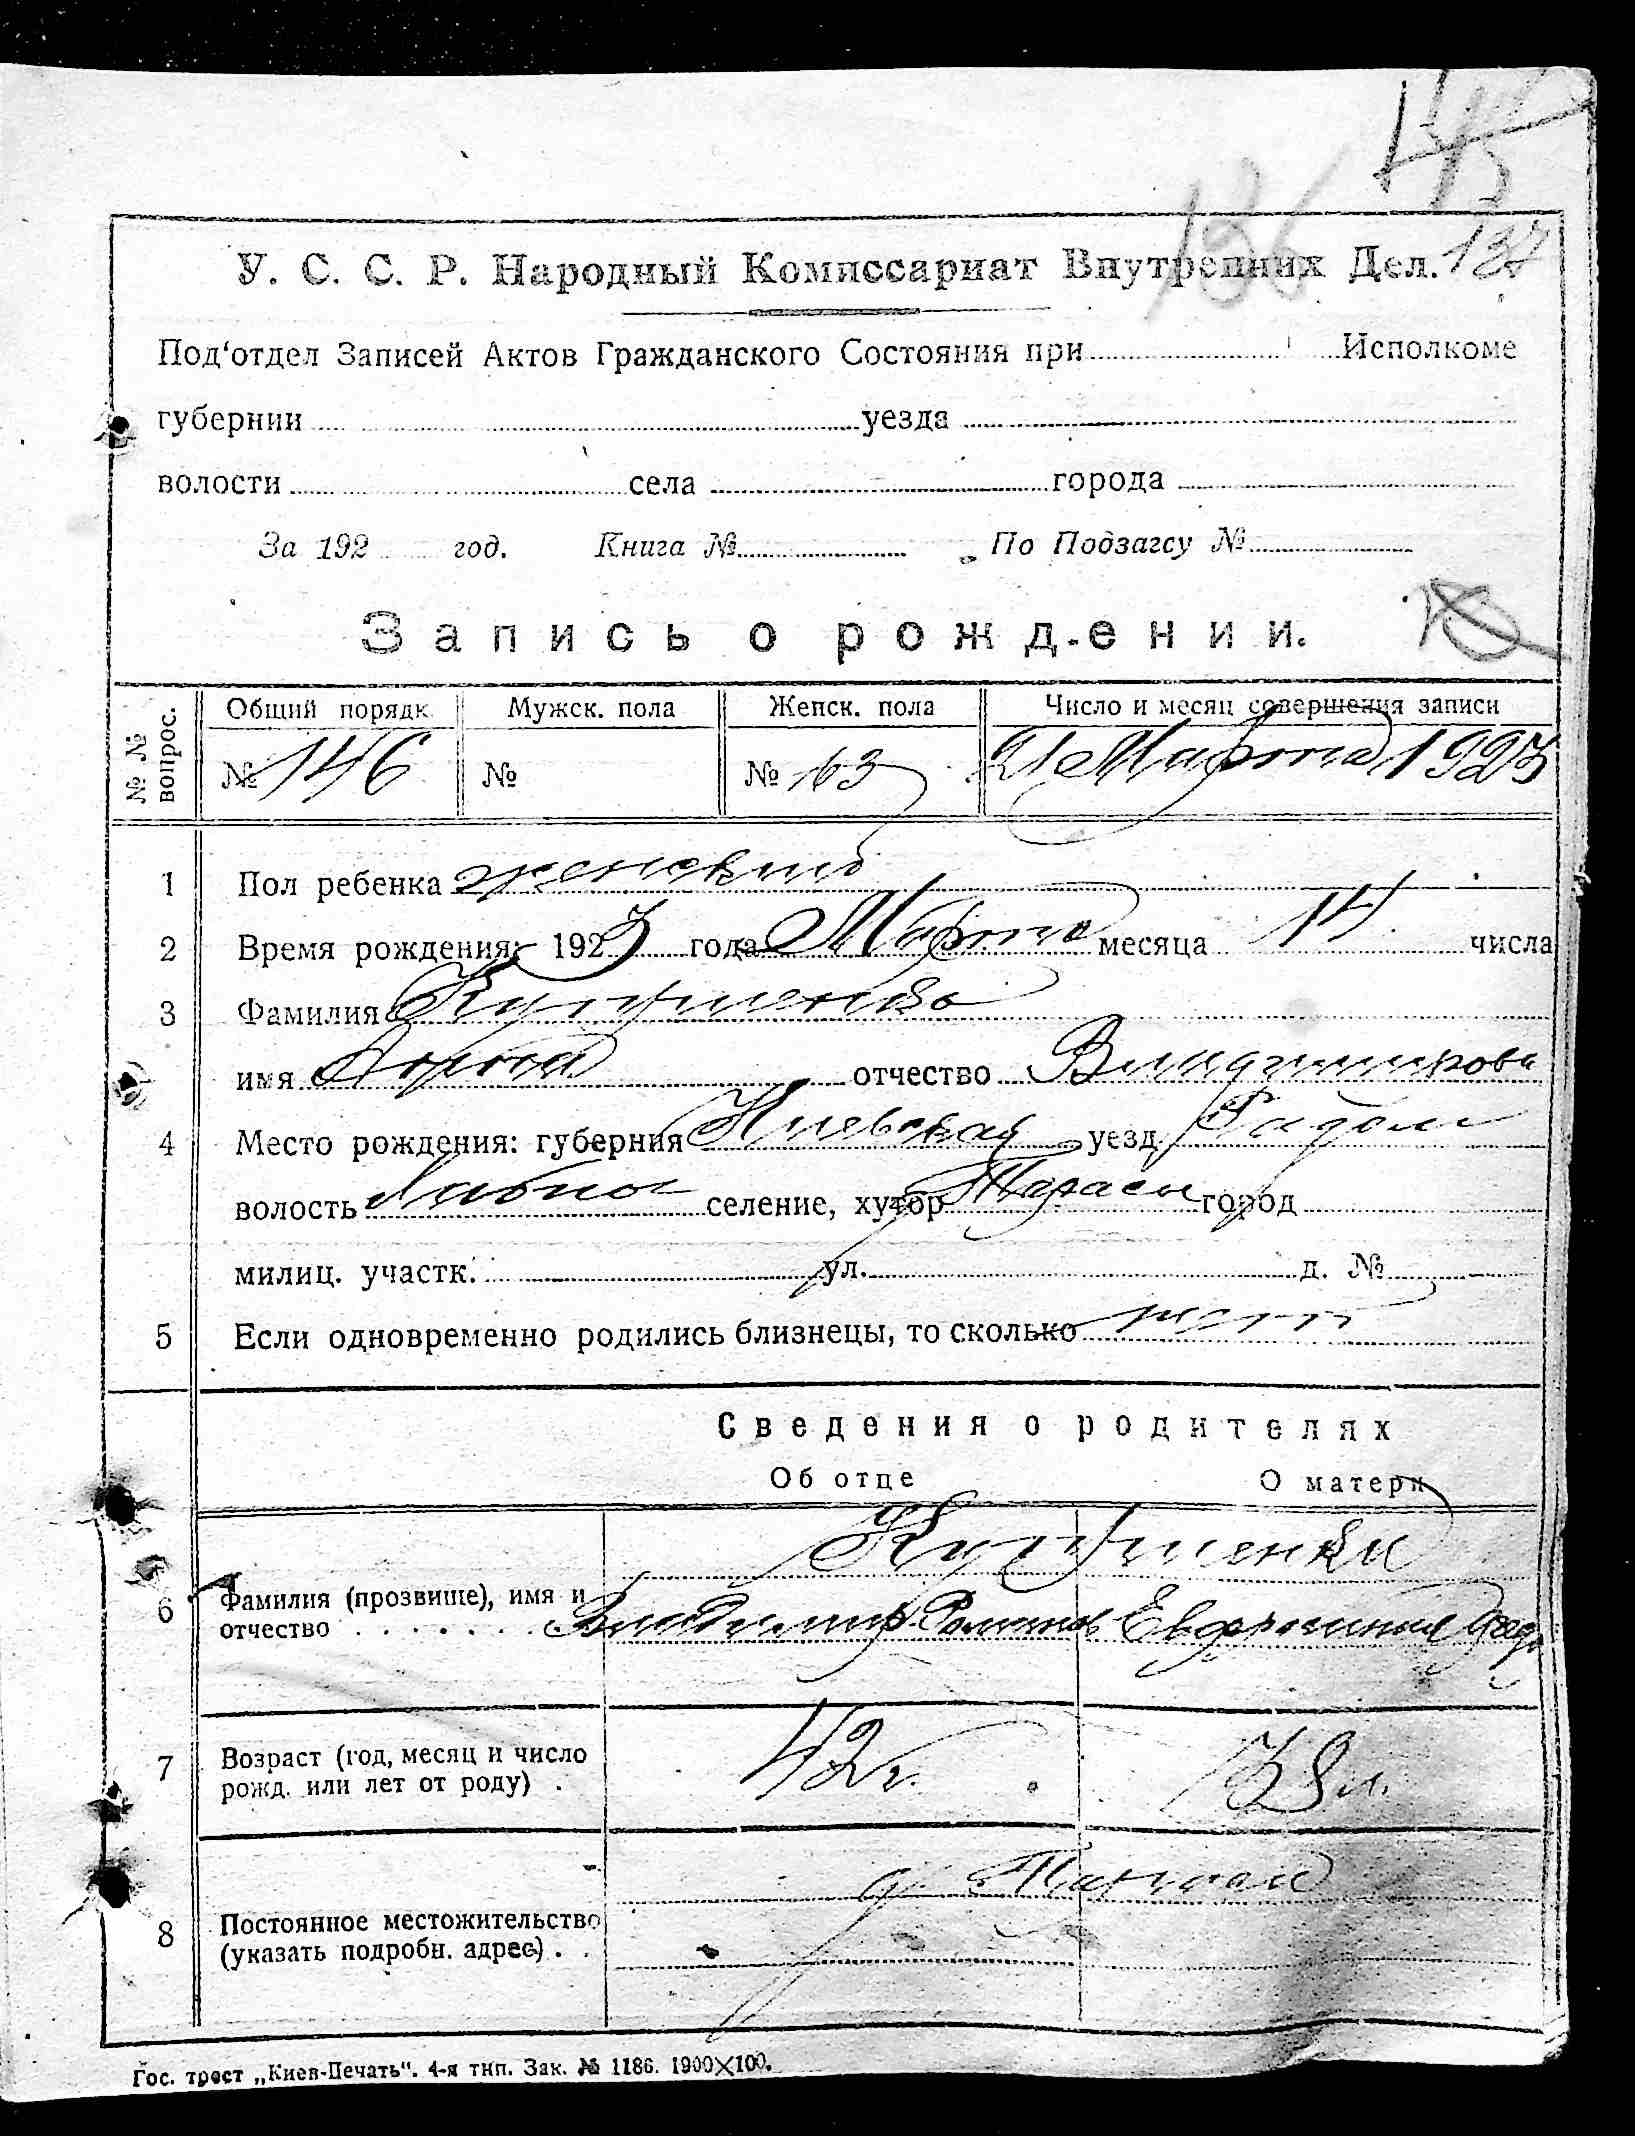 136
137
У. С. С. Р. Народный Комиссариат Внутренних Дел.
Под'отдел Записей Актов Гражданского Состояния при Исполкоме
губернии уезда
волости села города
За 192 год. Книга № По Подзагсу №
Запись о рождении.
№ № вопрос. Общий порядк. Мужск. пола Женск. пола Число и месяц совершения записи
№ 146 № № 63 21 Марта 1923
1 Пол ребенка женский
2 Время рождения: 1923 года Марта месяца 14 числа
3 Фамилия
имя отчество
4 Место рождения: губерния Киевская уезд Радом
волость селение, хутор Тарасы город
милиц. участк. ул. д. №
5 Если одновременно родились близнецы, то сколько
Сведения о родителях
Об отце О матери
6 Фамилия (прозвище), имя и
отчество Владимир Романов Евфросиния
7 Возраст (год, месяц и число
рожд. или лет от роду) 42 г. 38 л.
8 Постоянное местожительство
(указать подробн. адрес)
Гос. трест „Киев-Печать". 4-я тип. Зак. № 1186. 1900×100.